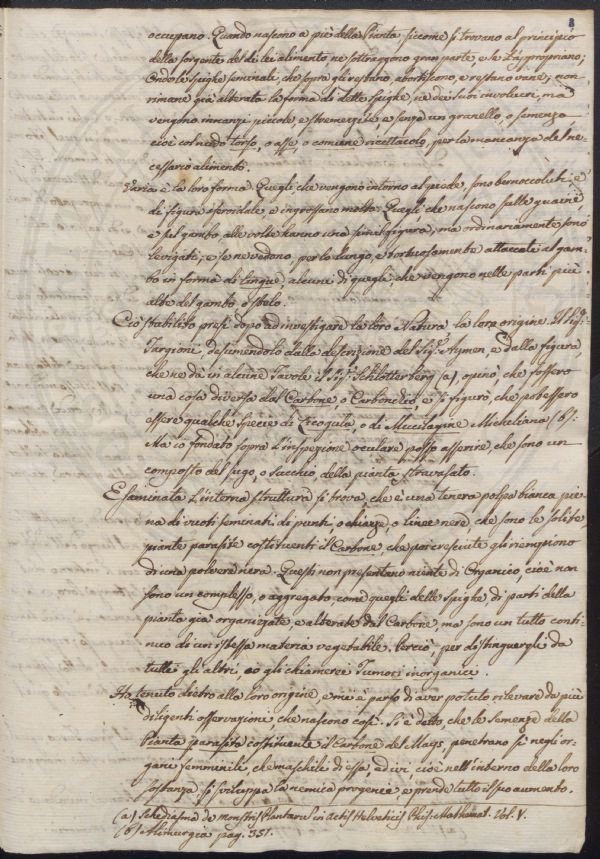 3
occupano. Quando nascono a piè della Pianta siccome si trovano al principio
della sorgente del di lei alimento ne sottraggono gran parte, e se l'appropriano;
Onde le spighe seminali, che sopra gli restano, abortiscono, e restano vane; non
rimane già alterata la forma di dette spighe, nè dei suoi involucri, ma
vengono innanzi piccole, e stremenzite, e senza un granello, o semenza
cioè col nudo torso, o asse, o comune ricettacolo, per la mancanza del ne-
cessario alimento.
Varia è la loro forma. Quegli che vengono intorno al piede, sono bernoccoluti, e
di figura sferoidale, e ingrossano molto. Quegli che nascono sulle guaine,
e sul gambo, alle volte hanno una simil figura, ma ordinariamente sono
levigati; e se ne vedono, per lo lungo, e tortuosamente attaccati al gam-
bo in forma di lingue, alcuni di quegli, che vengono nelle parti più
alte del gambo o stelo.
Ciò stabilito presi dopo ad investigare la loro Natura, la loro origine. Il Sigr.
Targioni, desumendolo dalla descrizione del Sigr. Aymen, e dalla figura,
che ne dà in alcune Tavole il Sigr. Schlotterberg (a), opinò, che fossero
una cosa diversa dal Carbone, o Carbonchio, e si figurò, che potessero
essere qualche specie di Licogala, o di Mucilagine Micheliana (b).
Ma io fondato sopra l'inspezione oculare posso asserire, che sono un
composto del sugo, o succhio, della pianta stravasato.
Esaminata l'interna struttura si trova, che è una tenera polpa bianca pie-
na di vuoti seminati di punti, o chiazze, o linee nere, che sono le solite
piante parasite costituenti il Carbone, che poi cresciute gli riempiono
di una polvere nera. Questi non presentano niente di Organico, cioè non
sono un complesso, o aggregato come quegli delle spighe, di parti della
pianta già organizzate, e alterate dal Carbone, ma sono un tutto conti-
nuo di un'istessa materia vegetabile. Perciò per distinguergli da
tutti gli altri, io gli chiamerei Tumori inorganici.
Ho tenuto dietro alla loro origine, e mi è parso di aver potuto rilevare da più
diligenti osservazioni che nascono così. Si è detto, che le semenze della
Pianta parasita costituente il Carbone del Mays, penetrano sì negli or-
gani femminili, che maschili di essa, ed ivi cioè nell'interno della loro
sostanza si sviluppa la nemica progenie, e prende tutto il suo aumento.
(a) Schediasma de monstris Plantarum in Actis Helveticis Phis. Mathemat. Vol. V.
(b) Alimurgia pag. 351.